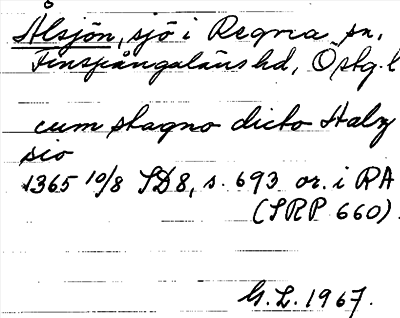 Ålsjön, sjö i Regna sn,
Finspångaläns hd, Östg. l
cum stagno dicto Halz
sio
1365 10/8 SD 8, s. 693 or. i RA
(SRP 660).
G. L. 1967.